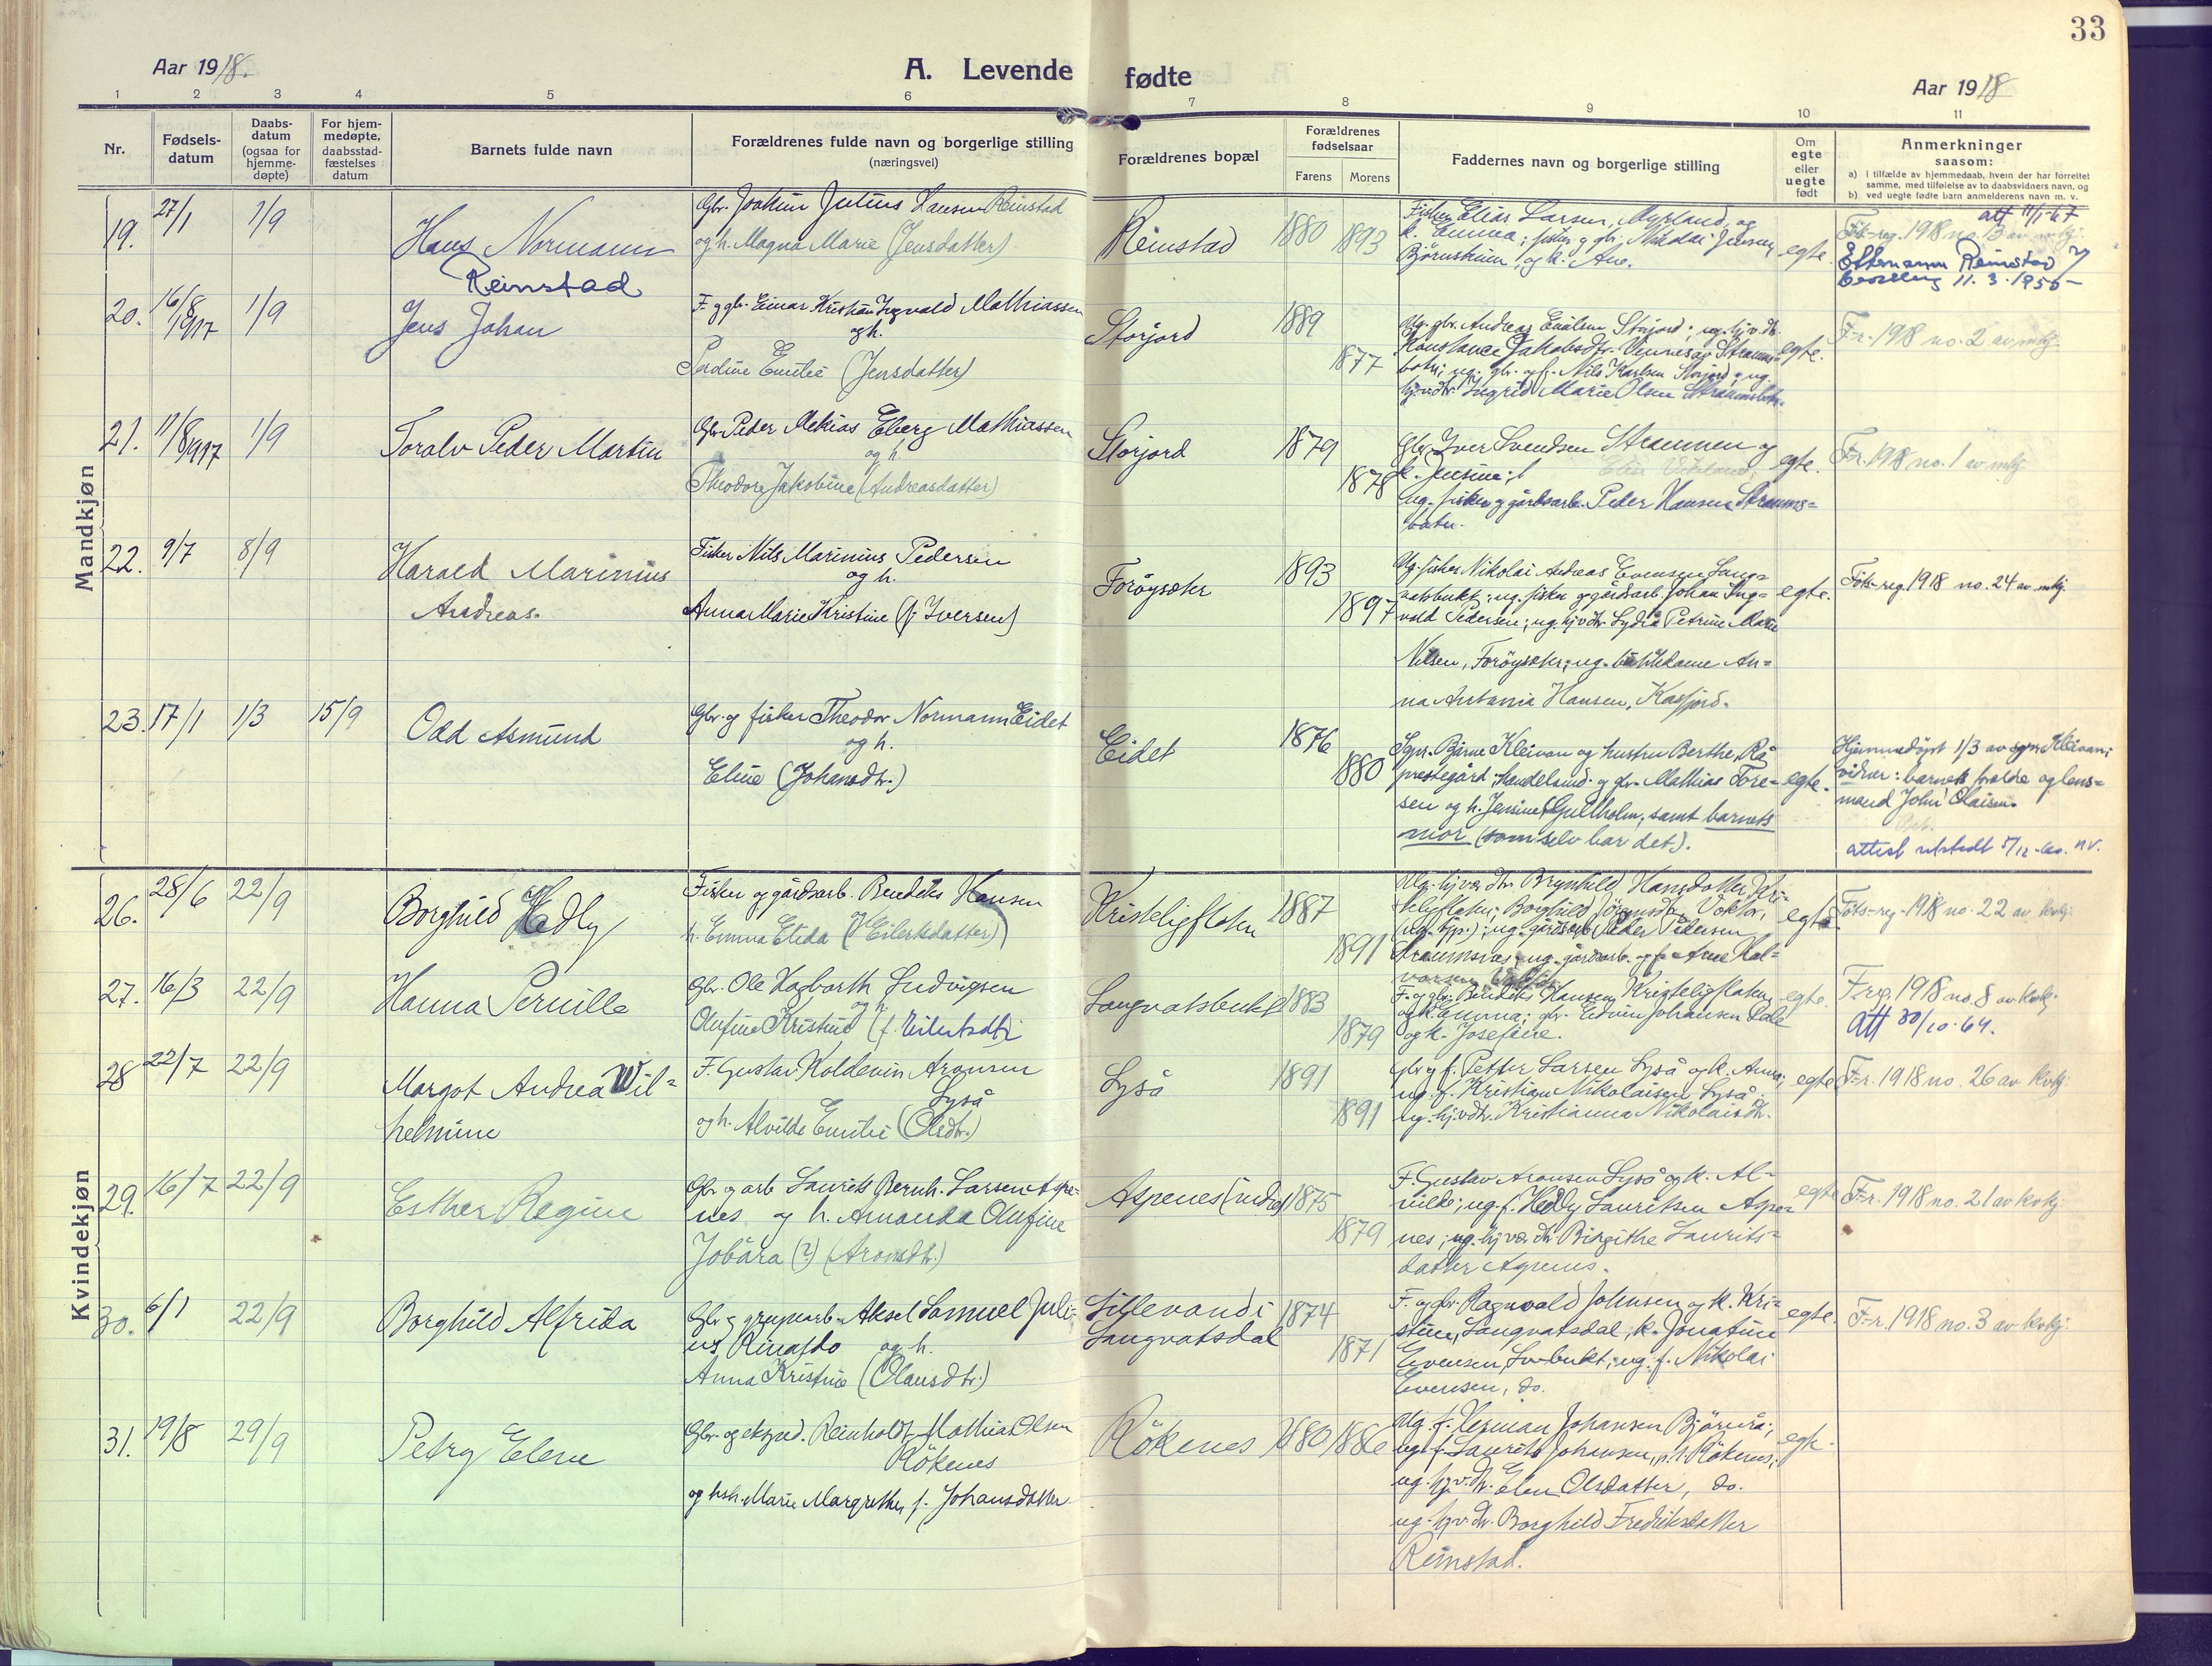 33
Aar 1918.
A. Levende fødte
Aar 1918
1 2 3 4 5 6 7 8 9 10 11
Nr.
Fødsels-
datum
Daabs-
datum
(ogsaa for
hjemme-
døpte)
For hjem-
medøpte,
daabsstad-
fæstelses
datum
Barnets fulde navn
Forældrenes fulde navn og borgerlige stilling
(næringsvei)
Forældrenes bopæl
Forældrenes
fødselsaar
Farens Morens
Faddernes navn og borgerlige stilling
Om
egte
eller
uegte
født
Anmerkninger
saasom:
a) I tilfælde av hjemmedaab, hvem der har forrettet
samme, med tilføielse av to daabsvidners navn, og
b) ved uegte fødte barn anmelderens navn m. v.
Mandkjøn
19. 27/1 1/9
Hans Normann
Reinstad
Gbr. Joakim Julius Hansen Reinstad
og h. Magna Marie (Jensdatter)
Reinstad 1880 1893
Fisker Elias Larsen, Myrland, og
k. Emma; fisker g gbr. Nikolai Jensen
Bjørnskinn, og k. Ane.
egte.
att 11/1-67
Fts-reg. 1918 no. 13 av mkj.
Efternavn Reinstad
11. 3. 1950
20. 16/8 1917 1/9
Jens Johan
F. g gbr. Einar Kristian Ingvald Mathiassen
og h.
Pardine Emilie (Jensdatter)
Storjord 1889 1877
Ug. gbr. Andreas Enalsen Storjord; ug. hj.v. dtr.
Konstance Jakobsdtr.
botn; ug. gbr. og f. Nils Karlsen Storjord; ug.
hj.v.dtr. Ingrid Marie Olsen Straumsbotn.
egte.
F-r. 1918 no. 2 av mkj.
21. 11/8 1917 1/9
Toralv Peder Martin
Gbr. Peder Mekias Eberg Mathiassen
og h.
Theodora Jakobine (Andreasdatter)
Storjord 1879 1878
Gbr. Iver Svendsen Straumen og
k. Jensine;
ug. fisker g gårdsarb. Peder Hansen Straums=
botn.
egte.
F-r. 1918 no. 1 av mkj.
22. 9/7 8/9
Harald Marinius
Andreas.
Fisker Nils Marinius Pedersen
og h.
Anna Marie Kristine (f. Iversen)
Forøysætr 1893 1897
Ug. fisker Nikolai Andreas Evensen Lang=
vatsbukt; ug. fisker g gårdsarb. Johan Ing=
vald Pedersen; ug. hjvdtr. Lydia Petrine Marie
Nilsen, Forøysætr; ug. butikdame An=
na Antonia Hansen, Kasfjord.
egte.
Føts-reg. 1918 no. 24 av mkj.
23. 17/1 1/3 15/9
Odd Asmund
Gbr. og fisker Theodor Normann Eidet
og h.
Eline (Johansdtr.)
Eidet 1876 1880
Sgpr. Bjarne Kleivan og hustru Berthe, Kå
prestegård; handelsmd. g gbr. Mathias Tore=
sen og h. Jensine, Gullholm; samt barnets
mor (som selv bar det).
egte.
Hjemmedøpt 1/3 av sgpr. Kleivan;
vidner: barnets forældre og lens=
mand John Olaisen.
attest utstedt 5/12-60. nv.
Kvindekjøn
26. 28/6 22/9
Borghild Hedly
Fisker og gårdsarb. Benedikts Hansen
h. Emma Elida (Eilertsdatter)
Kristeligfloten 1887 1891
Ug. hjv. dtr. Brynhild Hansdatter Kri=
teligfloten; Borghild Jörgensdtr. Voktor,
(ug. tjp.); ug. gårdsarb. Peder Pedersen
Straumsnes; ug. gårdsarb. og f. Arne Hal=
varsen
egte
Føts-reg. 1918 no. 22 av kvkj.
27. 16/3 22/9
Hanna Pernille
Gbr. Ole Hagbarth Ludvigsen
og h.
Olufine Kristine (f. Eilertsdtr.
Langvatsbukt 1883 1879
F. og gbr. Benedikts Hansen Kristeligfloten
og k. Emma; gbr. Edvin Johansen Dale
og k. Josefine.
egte.
F-reg. 1918 no. 8 av kvkj.
Att 30/10-64.
28 22/7 22/9
Margot Andrea Wil=
helmine
F. Gustav Koldevin Aronsen
Lyså
og h. Alvilde Emilie (Olsdtr.)
Lyså 1891 1891
Gbr. g f. Petter Larsen Lyså og k. Anna;
ug. f. Kristian Nikolaisen Lyså;
ug. hjvdtr. Kristianna Nikolaisdtr.
egte
F-r. 1918 no. 26 av kvkj.
29. 16/7 22/9
Esther Regine
Gbr. og arb. Laurits Bernh. Larsen Aspe=
nes og h. Amanda Olufine
Jobára (?) (Aronsdtr.)
Aspenes (indre) 1875 1879
F. Gustav Aronsen Lyså og k. Al=
vilde; ug. f. Hedly Lauritsen Aspe=
nes; ug. hjv. dtr. Birgithe Laurits=
datter Aspenes.
egte
F-r. 1918 no. 21 av kvkj.
30. 6/1 22/9
Borghild Alfrida
Gbr. g grupearb. Aksel Samuel Juli=
us Rinaldo og h.
Anna Kristine (Olausdtr.)
Lillevand i
Langvatsdal 1874 1871
F. og gbr. Ragnvald Johnsen og k. Kri=
stine, Langvatsdal, k. Jonatine
Evensen, Lv-bukt; ug. f. Nikolai
Evensen, do.
egte.
F-r. 1918 no. 3 av kvkj.
31. 19/8 29/9
Petry Elene
Gbr. og eksped. Reinholdt Mathias Olsen
Rökenes
og hsh. Marie Margrethe, f. Johansdatter
Rökenes 1880 1886
Ug. f. Herman Johansen Bjørnrå;
ug. f. Laurits Johansen, p.t. Rökenes;
ug. hj.v.dtr. Elen Olsdatter, do.
ug. hj.v.dtr. Borghild Fredriksdatter
Reinstad.
egte.